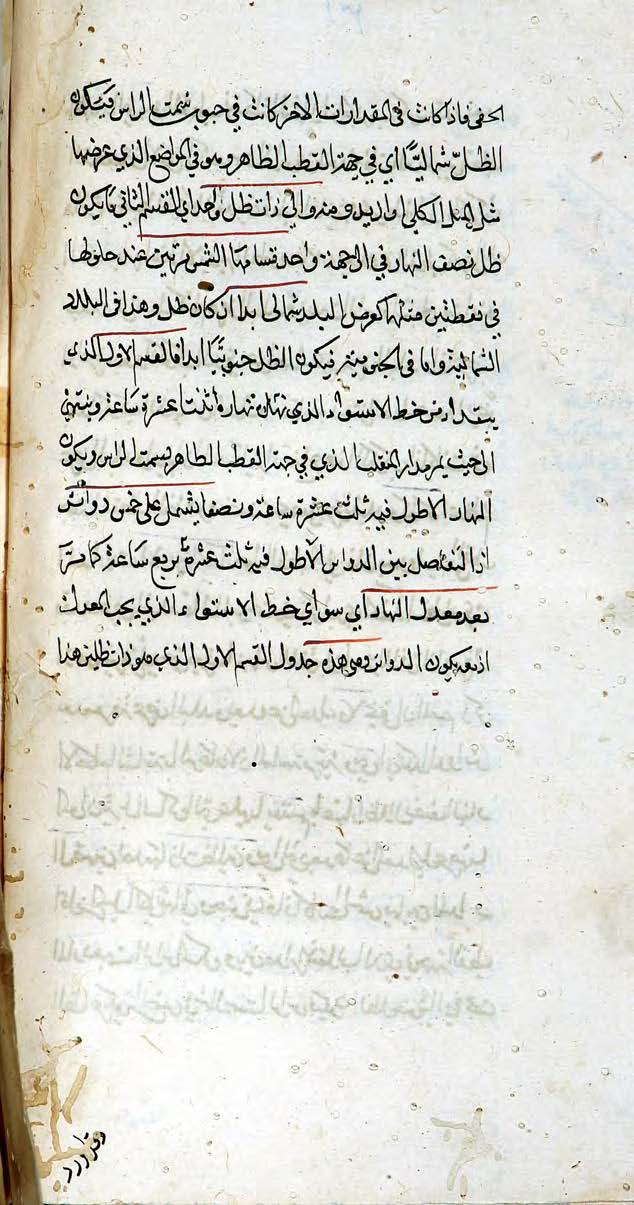 الخفي فاذا كانت في المقدارات الاخر كانت في جنوب سمت الراس فيكون
الظل شماليًّا اي في جهة القطب الظاهر وهو في المواضع الذي عرضها
مثل الميل الكلي او ازيد ومنه والي ذات ظل واحد اي القسم الثاني ما يكون
ظل نصف النهار في الى جهة واحد فسامها الشمس مرتين عند حلولها
في نقطتين مثلها كعرض البلد شمالى ابدا ان كان ظل وهذا في البلاد
الشمالية واما في الجنوبية فيكون الظل جنوبيًا ابدا فالقسم الاول الذي
يبتدا من خط الاستواء الذي نهاره اثنتا عشرة ساعة وينتهي
الى حيث يمر مدار المنقلب الذي في جهة القطب الظاهر بسمت الراس ويكون
النهار الاطول فيه ثلث عشرة ساعة ونصفا يشمل على خمس دوائر
اذ التفاضل بين الدوائر الاطول فيه ثلث عشرة بربع ساعة كما مر
بعد معدل النهار اي سواي خط الاستواء الذي يجب المعدل
اذ بعد يكون الدوائر وهي هذه جدول القسم الاول الذي هو ذات ظلين هذا